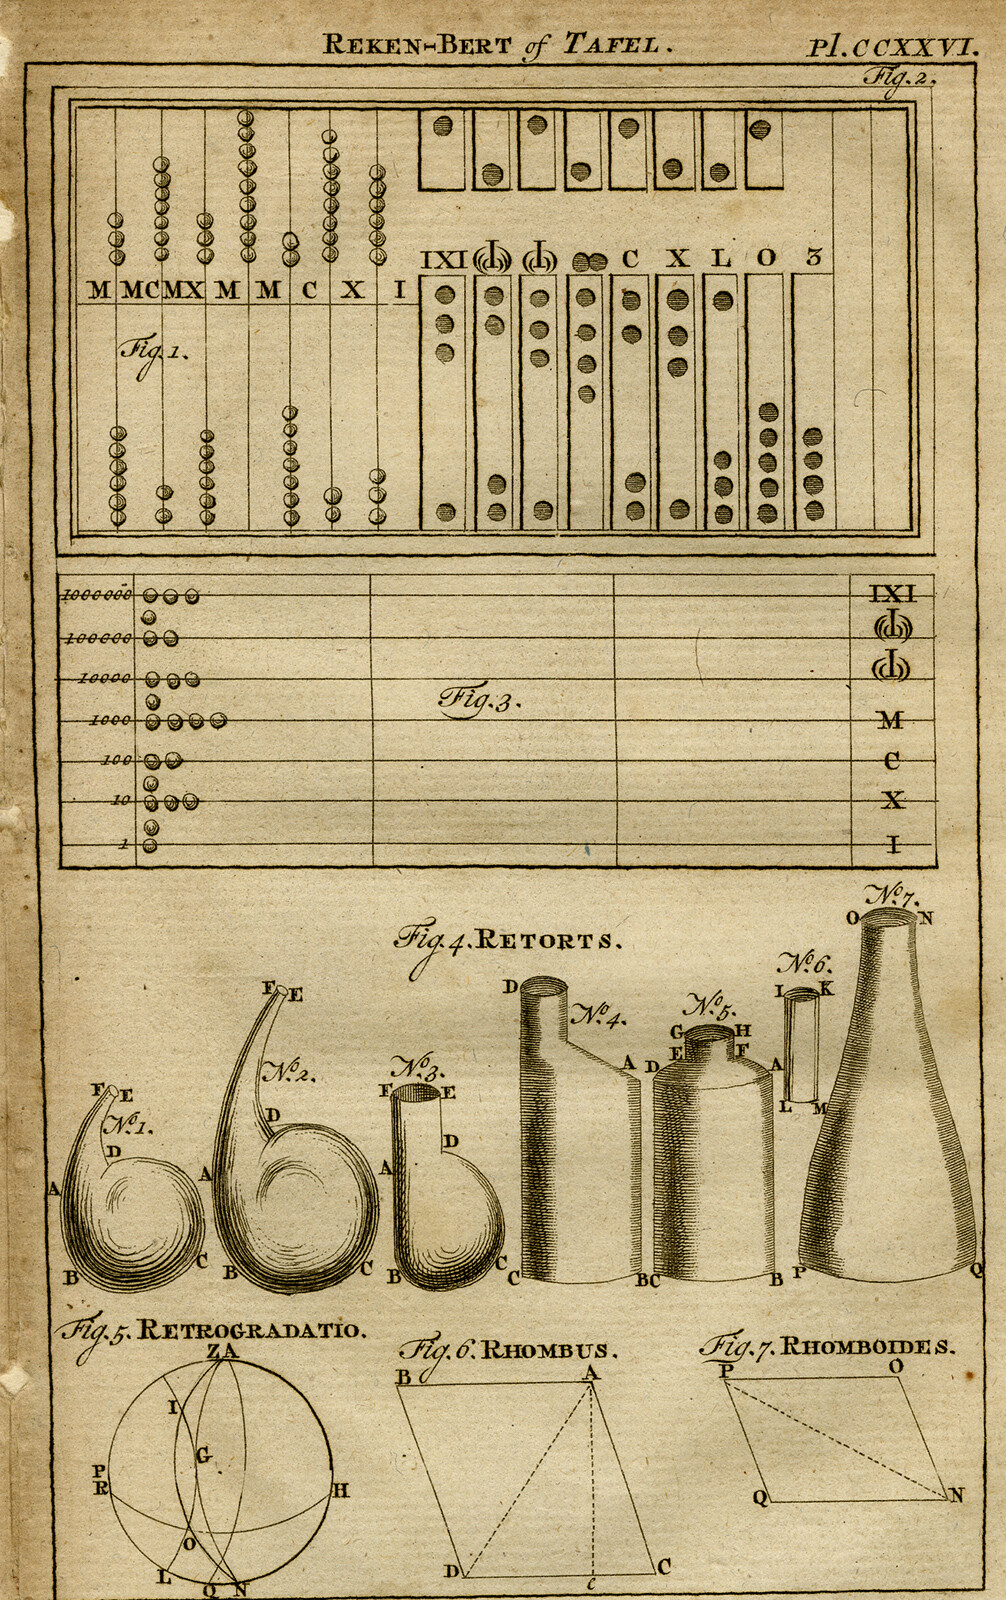 REKEN-BERT of TAFEL. Pl. CCXXVI.
Fig. 2.
IXI C X L O 3
M MC MX M M C X I
Fig. 1.
1000000 IXI
100000
10000
Fig. 3.
1000 M
100 C
10 X
1 I
Fig. 4. RETORTS.
No. 7.
O N
No. 6.
I K
D No. 4.
No. 5.
G H
E F
D A
A
L M
F E
No. 2.
D
No. 3.
F E
D
A
F E
No. 1.
D
A
A
B C B C B C C B C B P Q
Fig. 5. RETROGRADATIO.
ZA
I
G
P
R H
O
L Q N
Fig. 6. RHOMBUS.
B A
D c C
Fig. 7. RHOMBOIDES.
P O
Q N